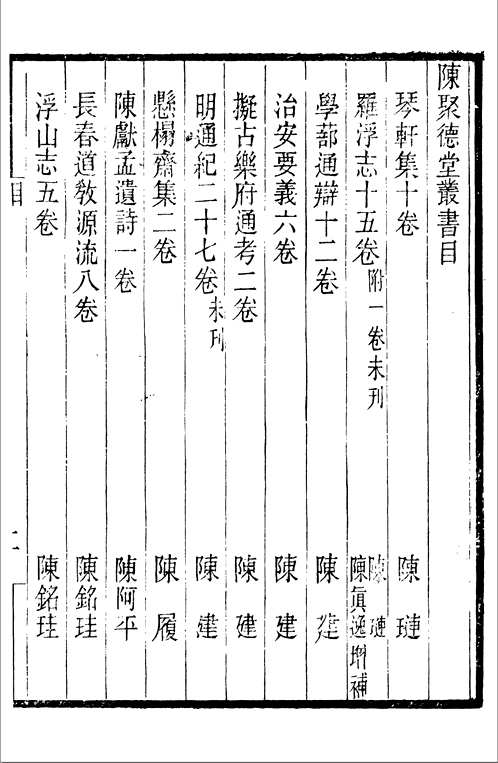 陳聚德堂叢書目
琴軒集十卷 陳璉
羅浮志十五卷 附一卷未刊 陳璉 陳眞逸增補
學蔀通辯十二卷 陳建
治安要義六卷 陳建
擬古樂府通考二卷 陳建
明通紀二十七卷 未刊 陳建
懸榻齋集二卷 陳履
陳獻孟遺詩一卷 陳阿平
長春道敎源流八卷 陳銘珪
浮山志五卷 陳銘珪
目
二